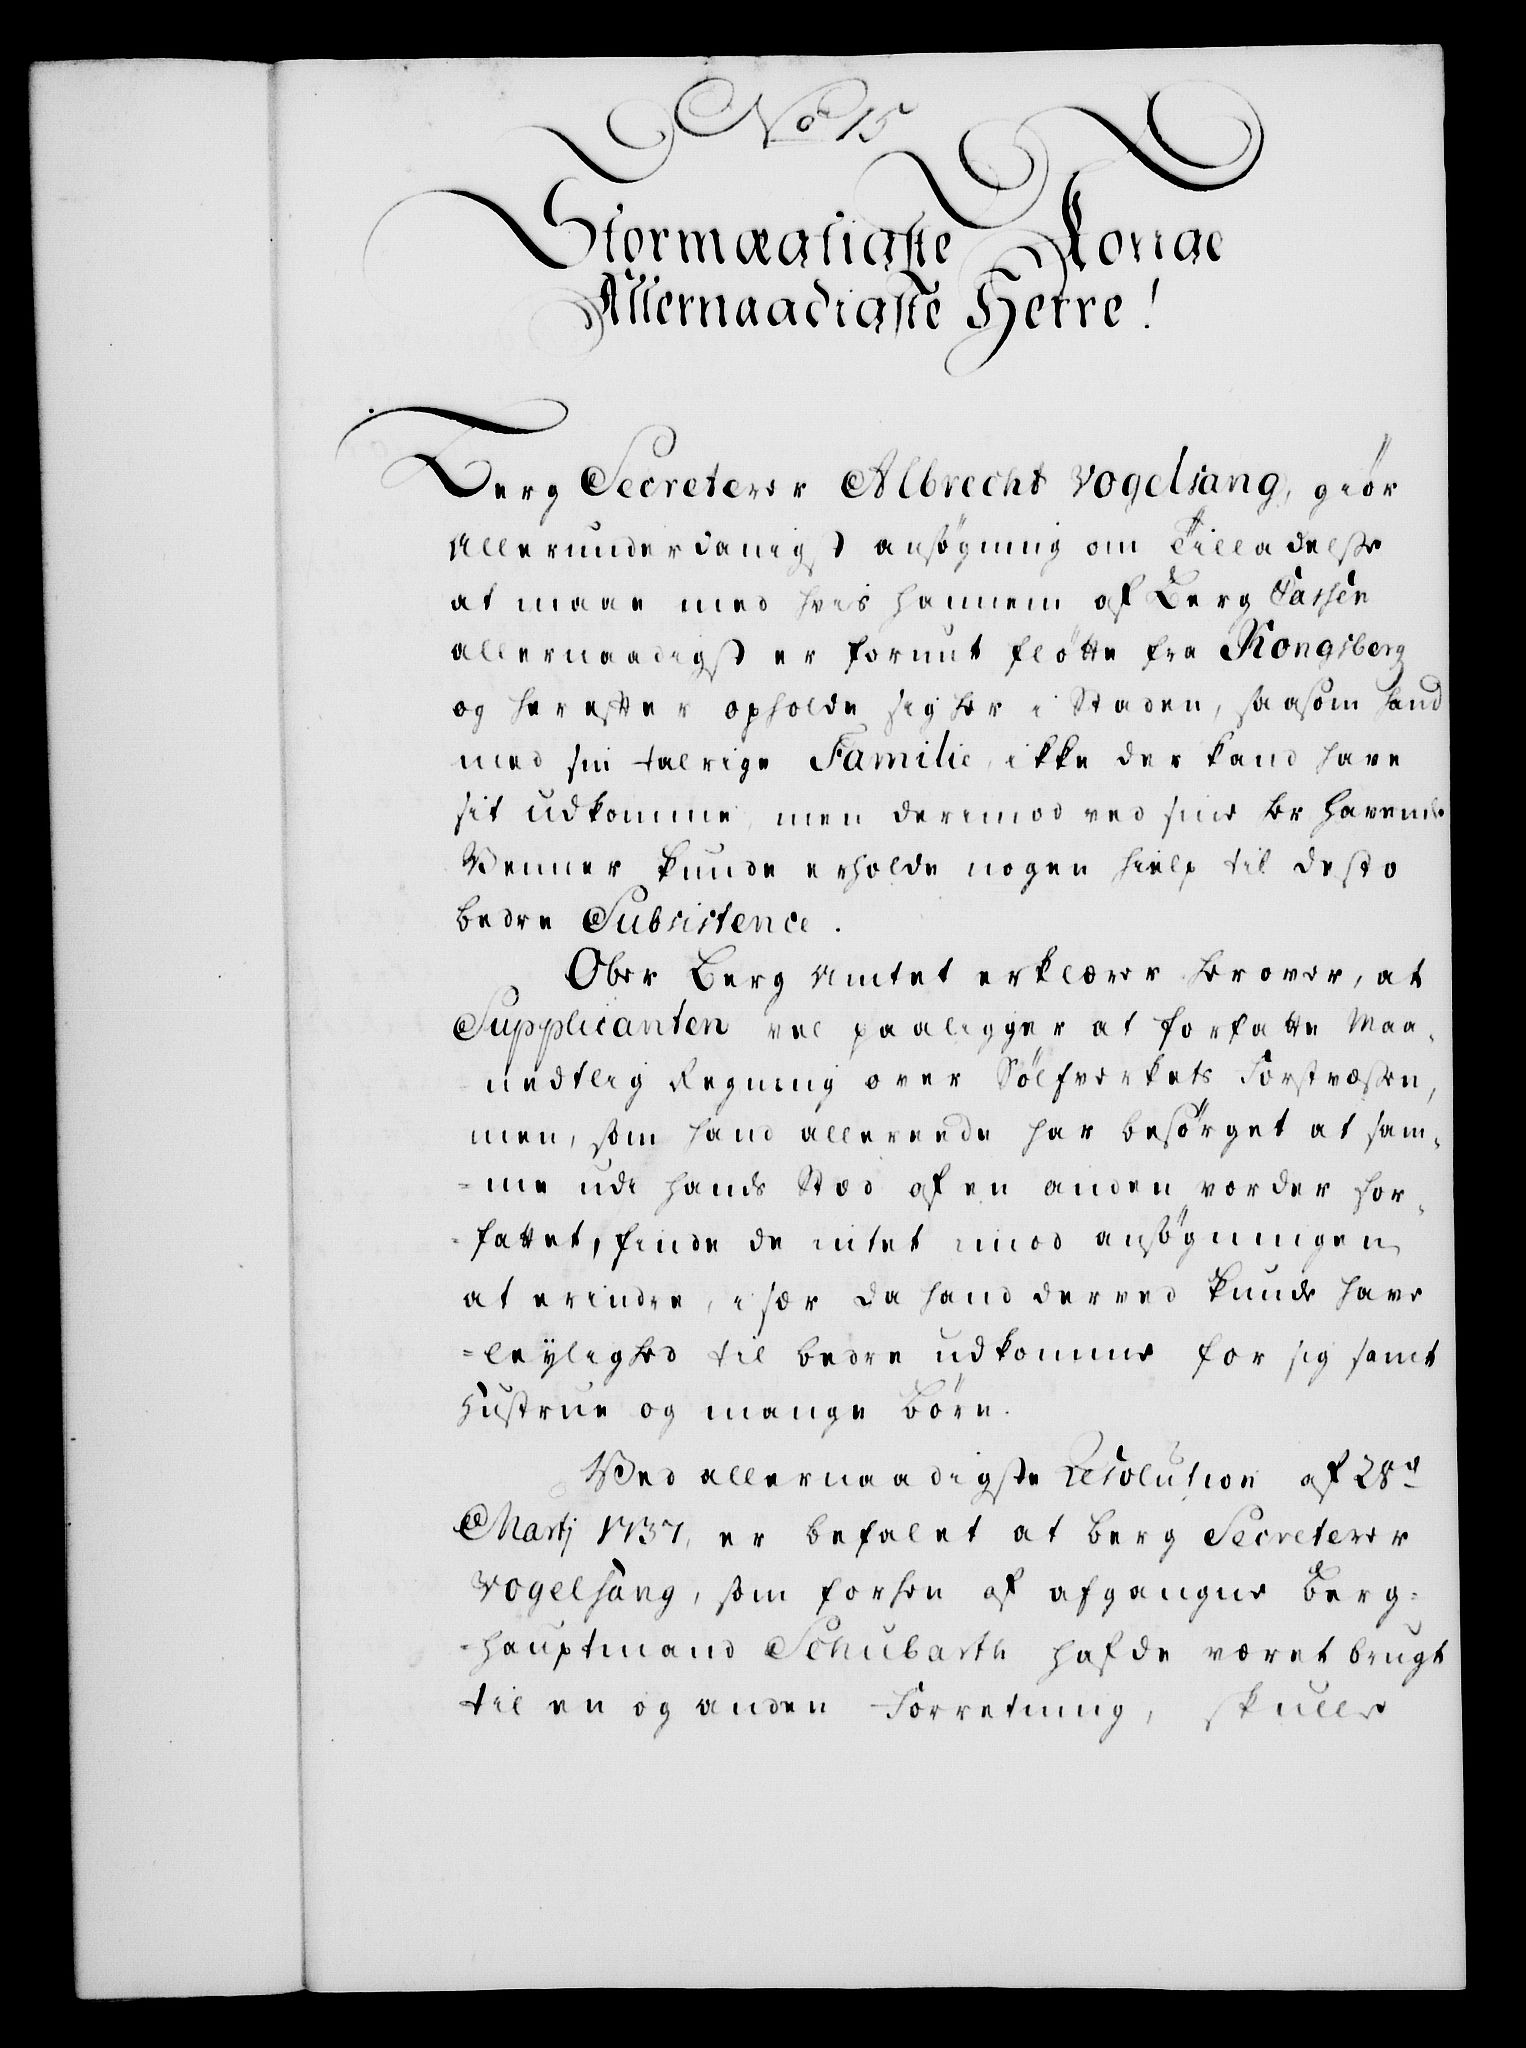 No 15
Stormægtigste Konge
Allernaadigste Herre!
Berg Secreterer Albrecht Vogelsang, giör
allerunderdanigst ansögning om Tilladelse
at maae med hvis hannem af Berg Cassen
allernaadigst er forunt fløtte fra Kongsberg
og herefter opholde sig her i Staden, saasom hand
med sin talrige Familie, ikke der kand have
sit udkomme, men derimod ved sine her havende
Venner kunde erholde nogen hielp til desto
bedre Subsistence.
Ober Berg Amtet erklærer herover, at
Supplicanten vel paaligger at forfatte Maa-
nedtlig Regning over Sölfverkets Forstvæsen,
men, som hand allereede har besörget at sam-
-me udi hands Sted af en anden vorder for-
-fattet, finde de intet imod ansögningen
at erindre, i sær da hand derved kunde have
-leylighed til bedre udkomme for sig samt
Hustrue og mange Börn.
Ved allernaadigste Resolution af 28de
Martj 1737, er befalet at Berg Secreterer
Vogelsang, som forhen af afgangne Berg-
-hauptmand Schubarth hafde været brugt
til en og anden Forretning, skulle